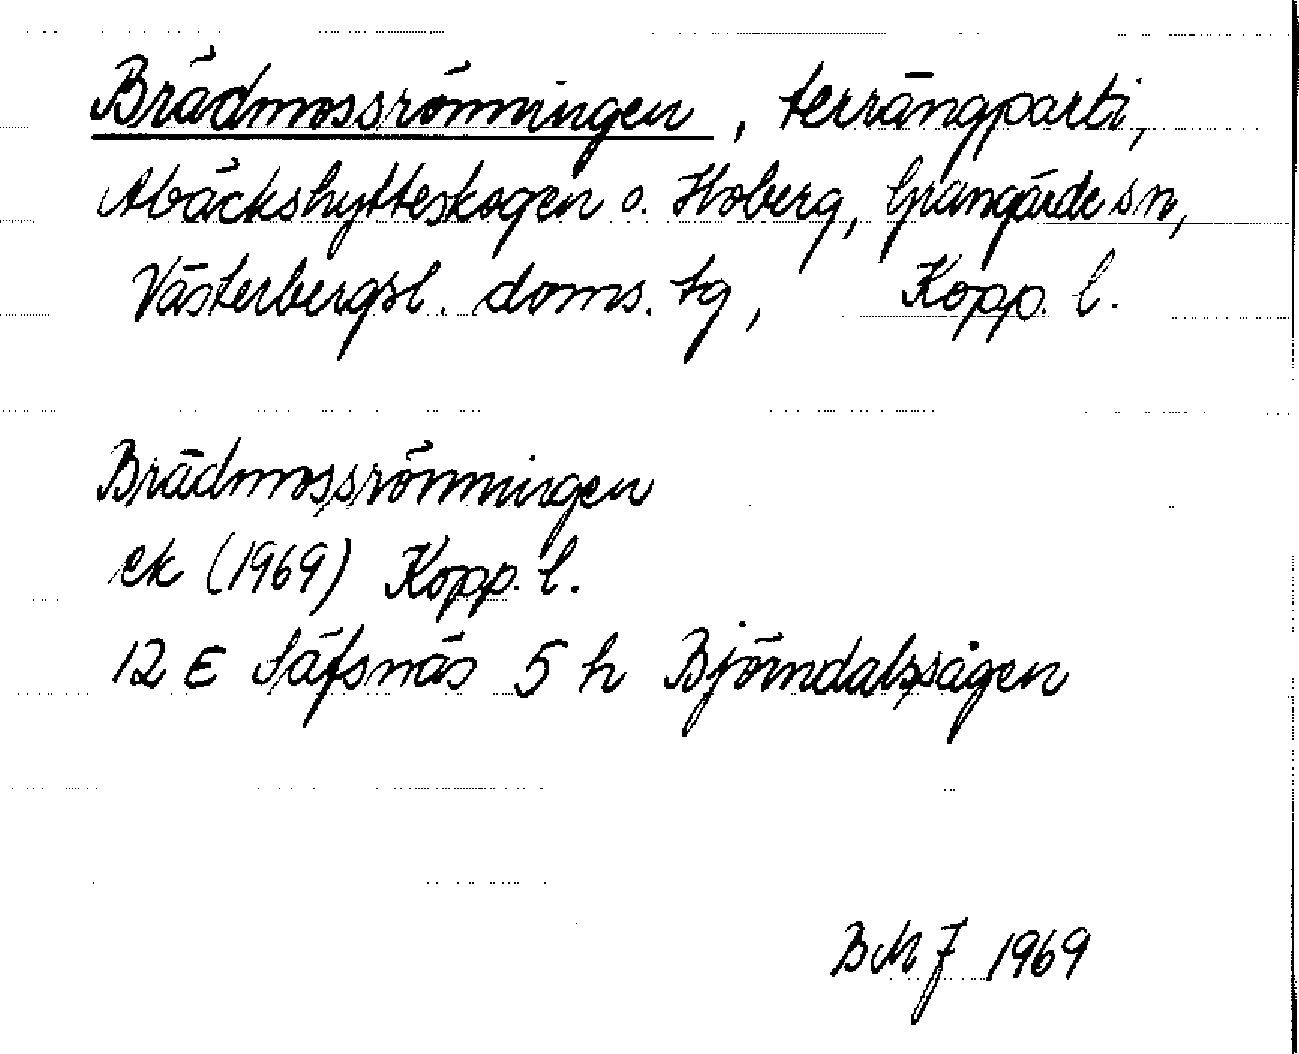 Brädmossrönningen, terrängparti,
Abäckshytteskogen o. Hoberg, Grangärde sn,
Västerbergsl. doms. tg, Kopp. l.
Brädmossrönningen
ek (1969) Kopp. l.
12 E Säfsnäs 5 h Björndalssågen
BMJ 1969